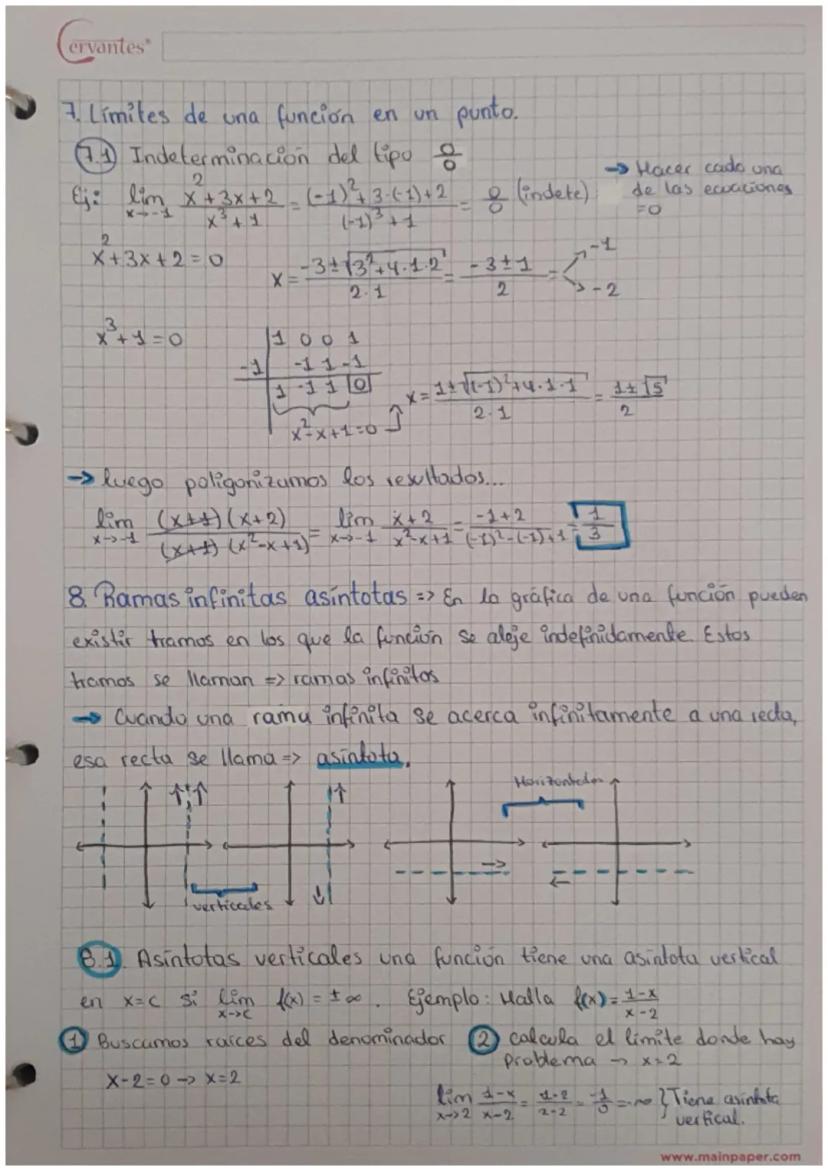 Cervantes
7. Límites de una función en un punto.
7.1 Indeterminación del tipo 0/0
→ Hacer cada una de las ecuaciones =0
Ej: lim x→-1 (x²+3x+2)/(x³+1) = ((-1)²+3·(-1)+2)/((-1)³+1) = 0/0 (indete)
x²+3x+2=0 x = (-3±√(3²+4·1·2))/(2·1) = (-3±1)/2 = -1 -2
x³+1=0
1 0 0 1
-1 -1 1 -1
1 -1 1 0
x²-x+1=0 x = (1±√((-1)²+4·1·1))/(2·1) = (1±√5)/2
→ luego poligonizamos los resultados...
lim x→-1 ((x+1)(x+2))/((x+1)(x²-x+1)) = lim x→-1 (x+2)/(x²-x+1) = (-1+2)/((-1)²-(-1)+1) = 1/3
8. Ramas infinitas asíntotas => En la gráfica de una función pueden
existir tramos en los que la función se aleje indefinidamente. Estos
tramos se llaman => ramas infinitas
→ Cuando una rama infinita se acerca infinitamente a una recta,
esa recta se llama => asíntota.
Horizontales
verticales
8.1. Asíntotas verticales una función tiene una asíntota vertical
en x=c si lim x→c f(x) = ±∞. Ejemplo: Halla f(x) = (1-x)/(x-2)
1 Buscamos raíces del denominador
x-2=0 → x=2
2 calcula el límite donde hay
problema → x=2
lim x→2 (1-x)/(x-2) = (1-2)/(2-2) = -1/0 = -∞ } Tiene asíntota
vertical.
www.mainpaper.com